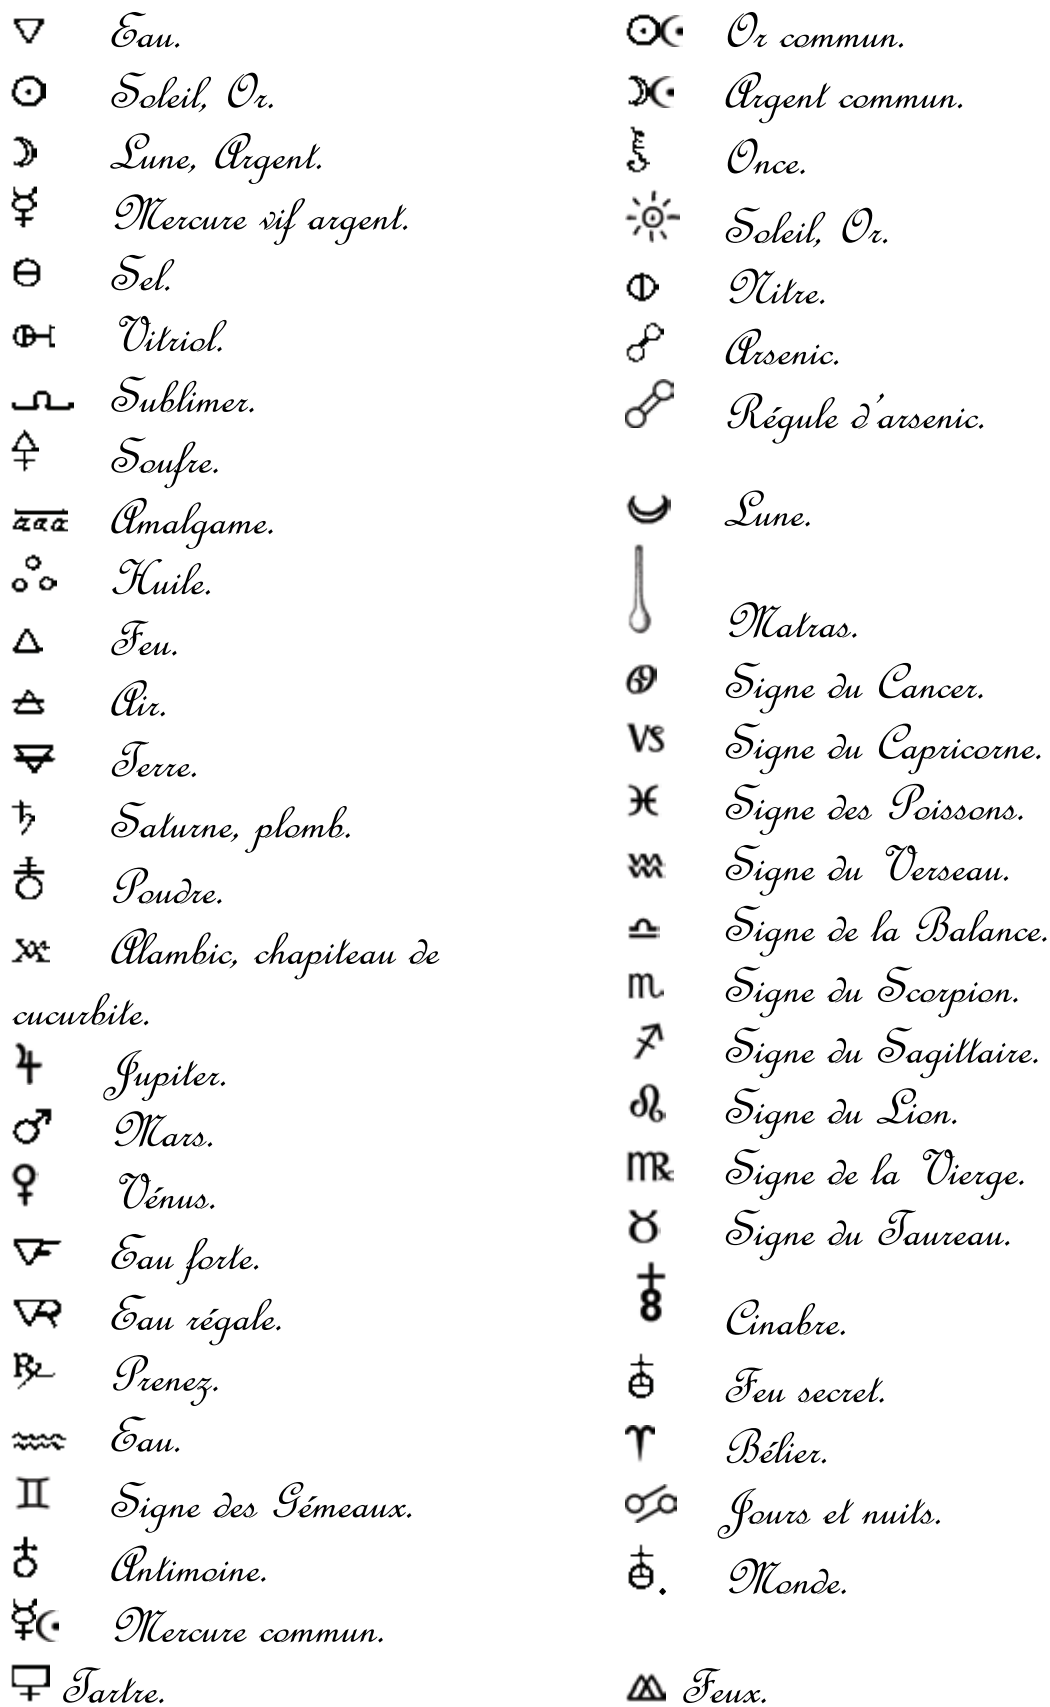 Eau.
Soleil, Or.
Lune, Argent.
Mercure vif argent.
Sel.
Vitriol.
Sublimer.
Soufre.
Amalgame.
Huile.
Feu.
Air.
Terre.
Saturne, plomb.
Poudre.
Alambic, chapiteau de
cucurbite.
Jupiter.
Mars.
Vénus.
Eau forte.
Eau régale.
Prenez.
Eau.
Signe des Gémeaux.
Antimoine.
Mercure commun.
Tartre.
Or commun.
Argent commun.
Once.
Soleil, Or.
Nitre.
Arsenic.
Régule d'arsenic.
Lune.
Matras.
Signe du Cancer.
Signe du Capricorne.
Signe des Poissons.
Signe du Verseau.
Signe de la Balance.
Signe du Scorpion.
Signe du Sagittaire.
Signe du Lion.
Signe de la Vierge.
Signe du Taureau.
Cinabre.
Feu secret.
Bélier.
Jours et nuits.
Monde.
Feux.